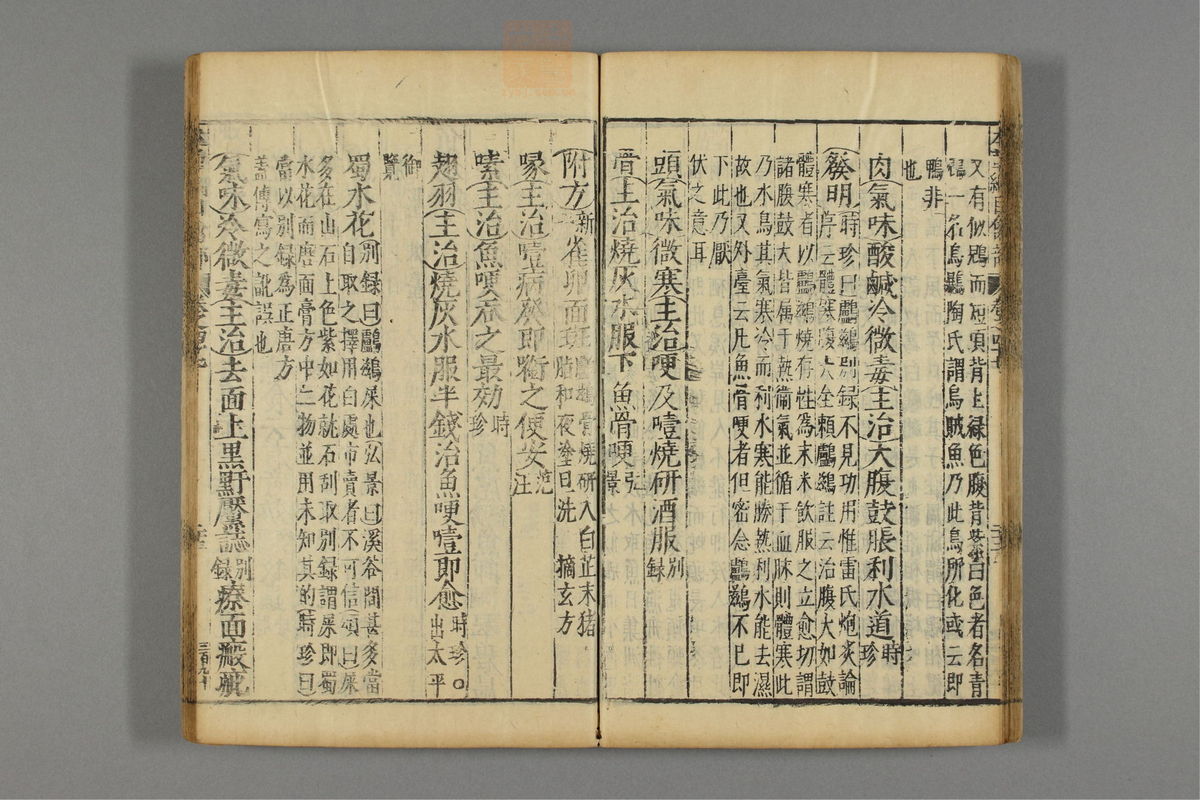 又有似鴎而短項背上綠色腹背紫白色者名青
鶂一名烏鷖陶氏謂烏賊魚乃此鳥所化或云即
鴨非
也
肉氣味酸鹹冷微毒主治大腹鼓脹利水道時珍
發明時珍曰鸕鷀別録不見功用惟雷氏炮炙論
序云體寒腹大全賴鸕鷀註云治腹大如鼓
體寒者以鸕鷀燒存性爲末米飲服之立愈切謂
諸腹鼓大皆属于熱衛氣並循于血脉則體寒此
乃水鳥其氣寒冷而利水寒能勝熱利水能去濕
故也又外臺云凡魚骨哽者但密念鸕鷀不已即
下此乃厭
伏之意耳
頭氣味微寒主治哽及噎燒研酒服別録
骨主治燒灰水服下魚骨哽弘景
附方新雀卵面斑鸕鷀骨燒研入白芷末猪
脂和夜塗旦洗 摘玄方
喙主治噎病發即銜之便安范汪
嗉主治魚哽吞之最効時珍
翅羽主治燒灰水服半錢治魚哽噎即愈時珍○出太平
御
覽
蜀水花別録曰鸕鷀屎也弘景曰溪谷間甚多當
自取之擇用白處市賣者不可信頌曰屎
多在山石上色紫如花就石刮取別録謂屎即蜀
水花而唐面膏方中二物並用未知其的時珍曰
當以別録爲正唐方
蓋傳寫之訛誤也
氣味冷微毒主治去面上黑䵟黶誌別録療面瘢疵